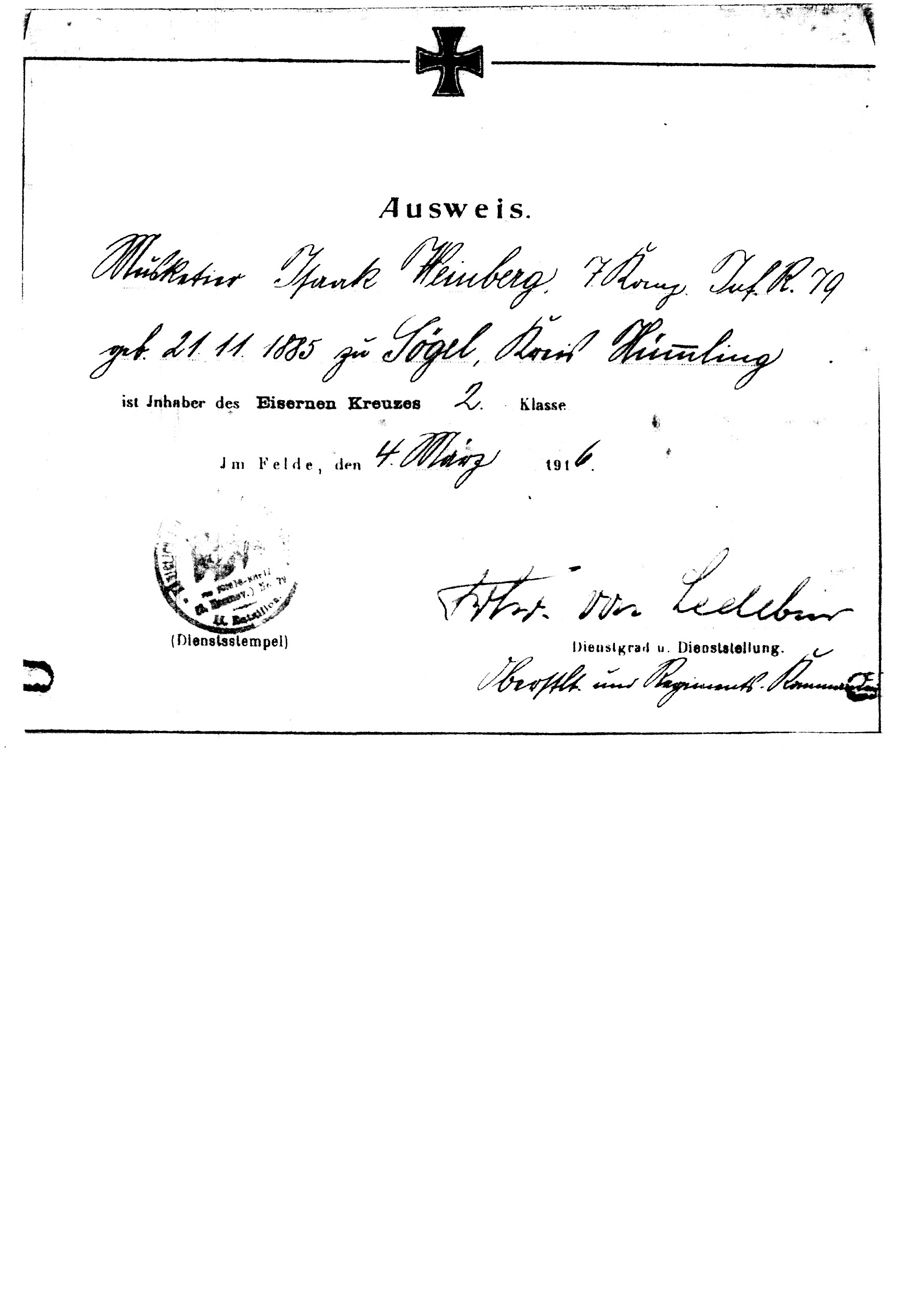 Ausweis.
Musketier Isaak Weinberg, 7 Komp. Inf. R. 79
geb. 21. 11. 1885 zu Sögel, Kreis Hümmling
ist Jnhaber des Eisernen Kreuzes 2. Klasse
Jm Felde, den 4. März 1916.
(3. Hannov.) Nr. 79
II. Bataillon.
(Dienstsstempel)
Frhr. von Ledebur
Dienstgrad u. Dienststellung.
Oberstlt. und Regiments-Kommandeur